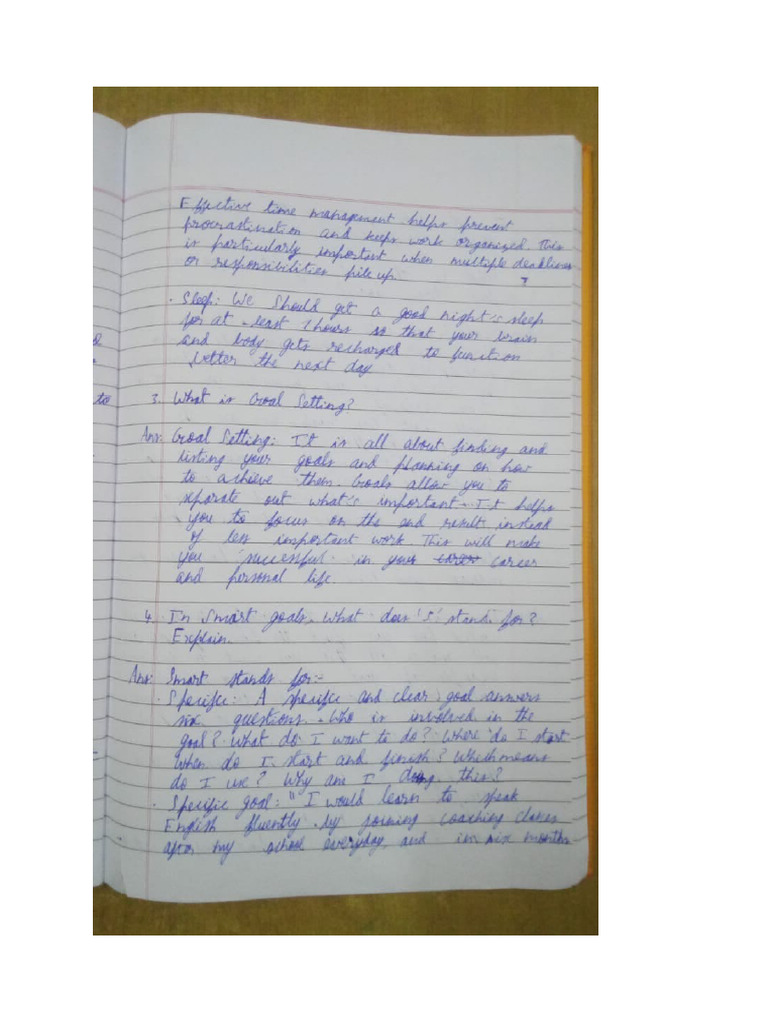 Effective time management helps prevent
procrastination and keeps work organized. This
is particularly important when multiple deadlines
or responsibilities pile up.
· Sleep: We should get a good night's sleep
for at least 7 hours so that your brain
and body gets recharged to function
better the next day
to
3. What is Goal Setting?
Ans: Goal Setting: It is all about finding and
listing your goals and planning on how
to achieve them. Goals allow you to
separate out what's important. It helps
you to focus on the end result instead
of less important work. This will make
you successful in your career
and personal life
4. In Smart goals, what does 'S' stands for?
Explain.
Ans: Smart stands for:-
· Specific: A specific and clear goal answers
six questions. Who is involved in the
goal? What do I want to do? Where do I start
When do I start and finish? Which means
do I use? Why am I doing this?
· Specific goal: "I would learn to speak
English fluently by joining coaching classes
after my school everyday, and in six months